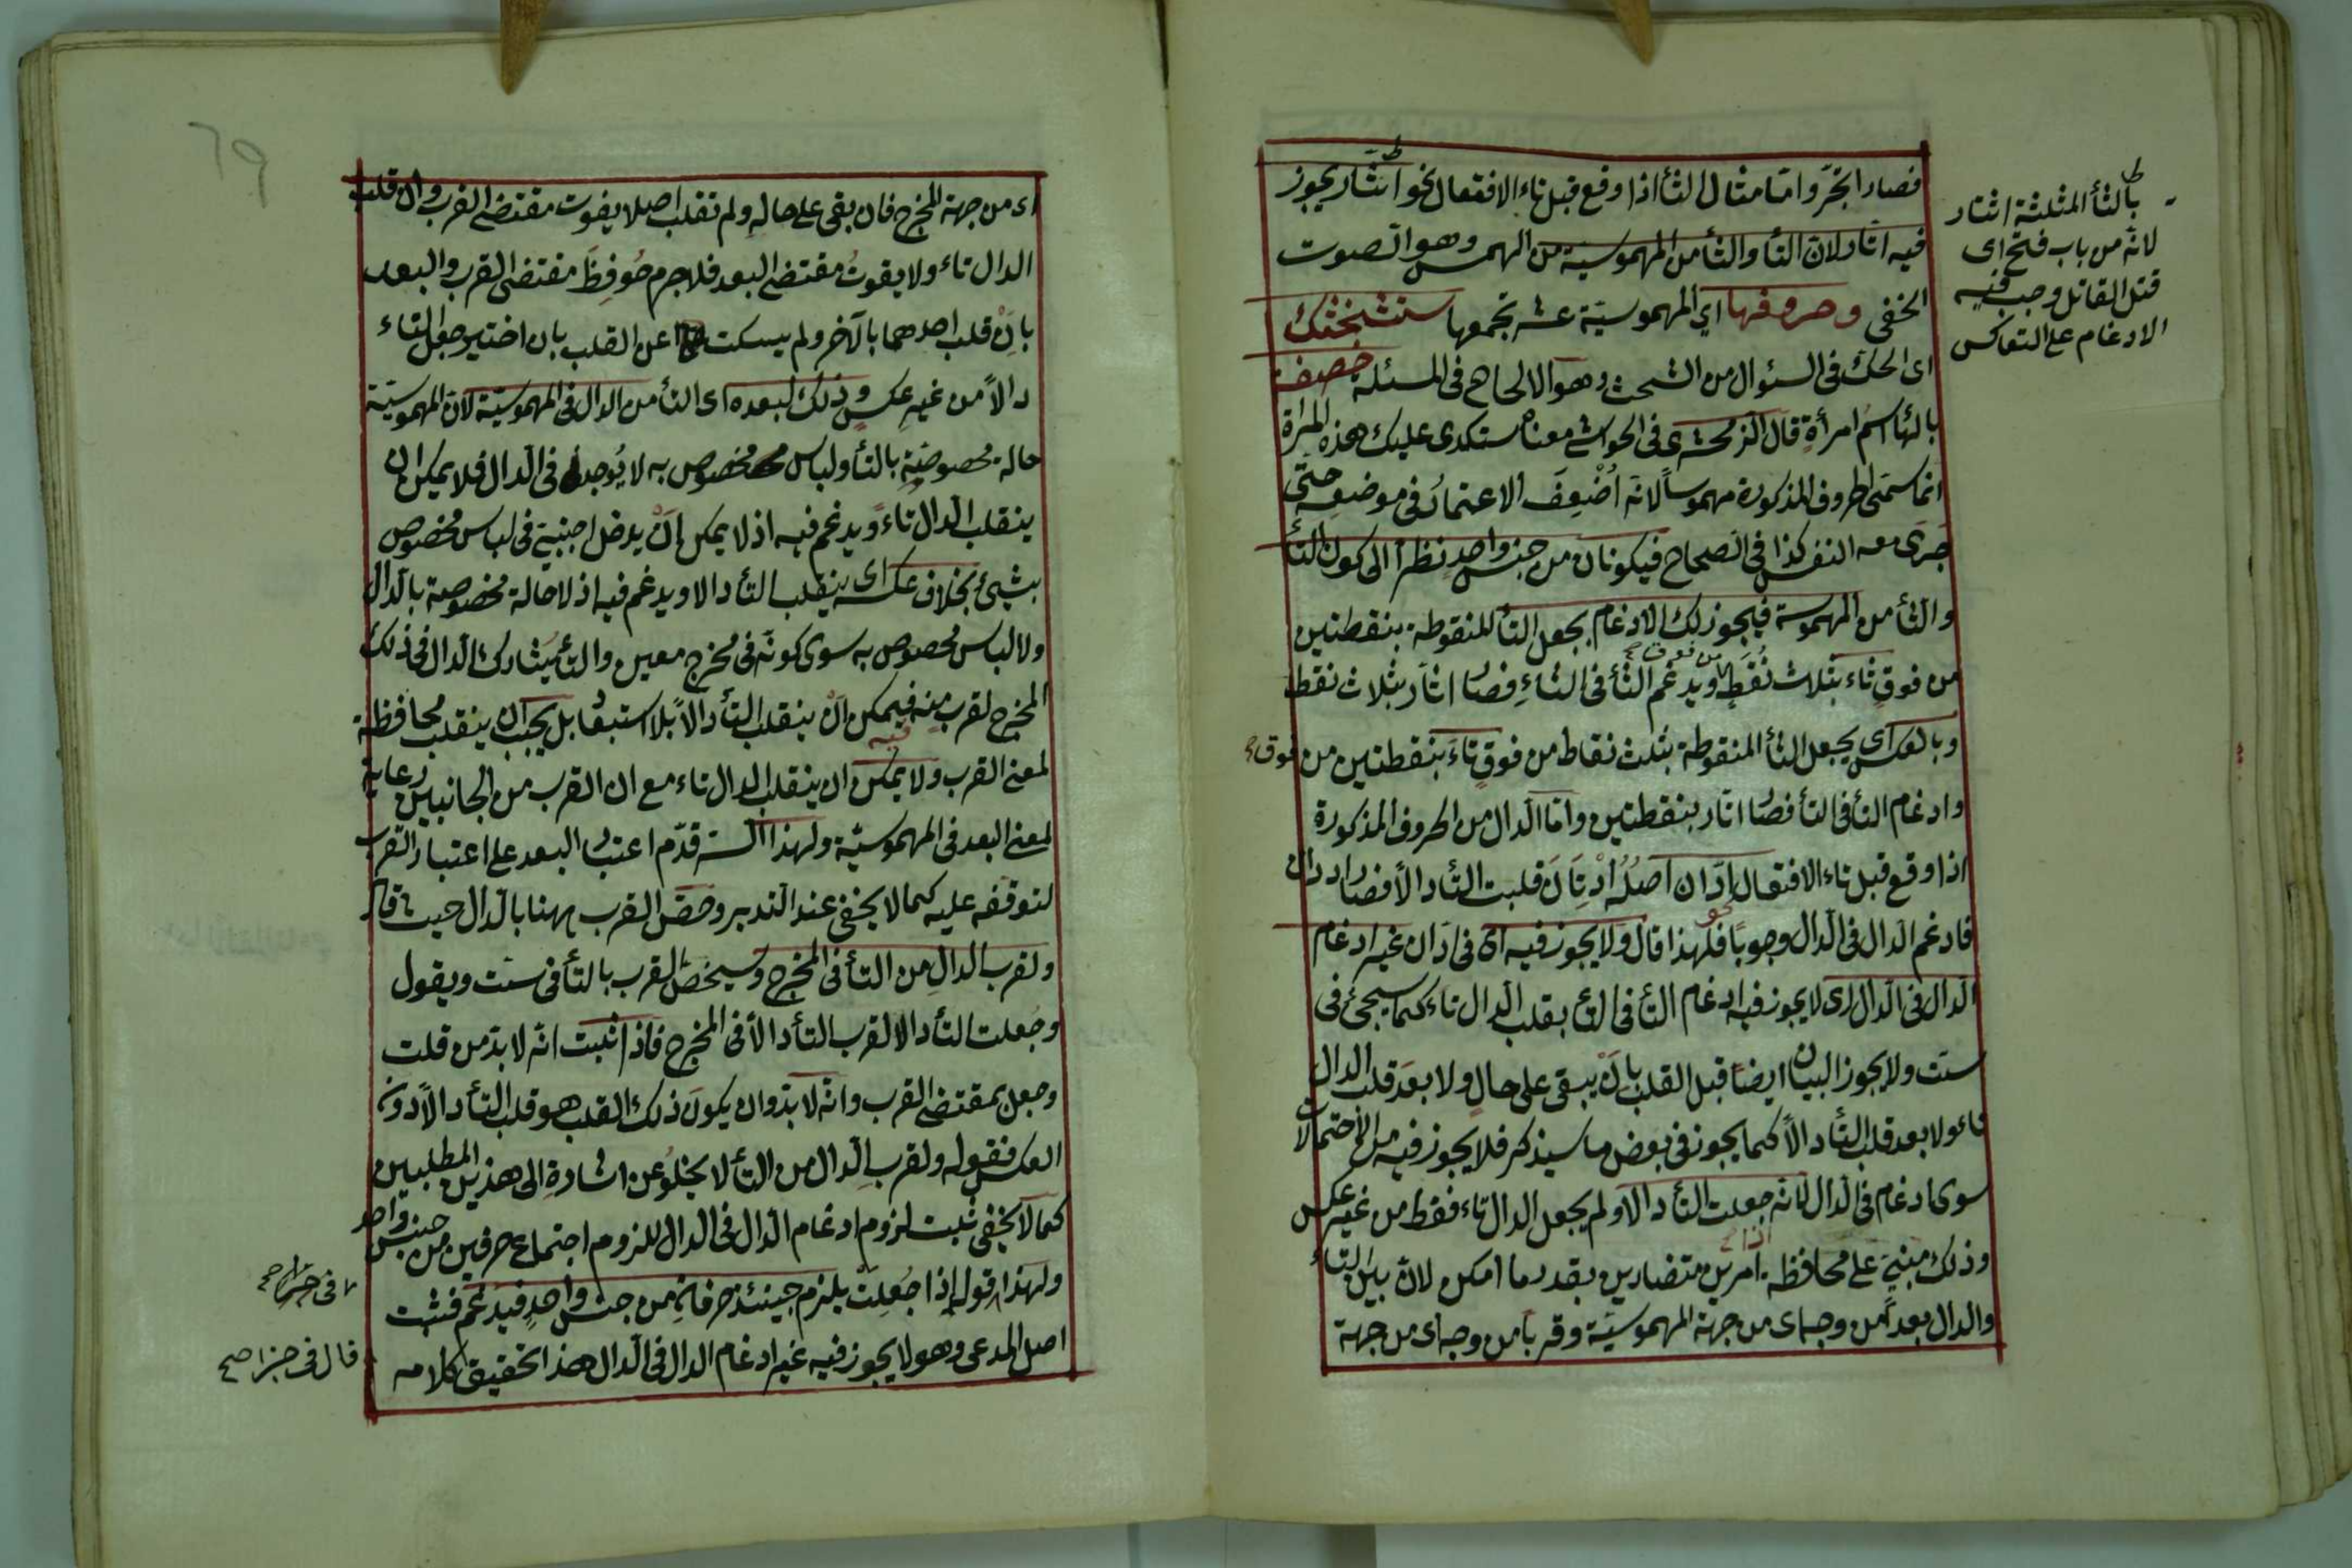 فصار اتجر واما مثال الثاء اذا وقع قبل تاء الافتعال نحو اثتار يجوز
فيه اتار لان التاء والثاء من المهموسية من الهمس وهو الصوت
الخفى وحروفها اي المهموسية عشر تجمعها ستشحثك
اى الحك فى السئوال من الشحث وهو الالحاح فى المسئلة خصفه
بالهاء اسم امرأة قال الزمخشرى فى الحواشى معناه ستكدى عليك هذه المرأة
انما سمى الحروف المذكورة مهموسا لانه اضعف الاعتماد فى موضعه حتى
جرى معه النفس كذا فى الصحاح فيكونان من جنس واحد نظرا الى كون التاء
والثاء من المهموسة فيجوز لك الادغام بجعل التاء المنقوطة بنقطتين
من فوق ثاء بثلاث نقط من فوق ويدغم الثاء فى الثاء فصار اثار بثلاث نقط
وبالعكس اى بجعل الثاء المنقوطة بثلث نقاط من فوق تاء بنقطتين من فوق
وادغام التاء فى التاء فصار اتار بنقطتين واما الدال من الحروف المذكورة
اذا وقع قبل تاء الافتعال نحو ادان اصله ادتان قلبت التاء دالا فصار اددان
فادغم الدال فى الدال وجوبا فلهذا قال ولا يجوز فيه اى فى ادان غير ادغام
الدال فى الدال اى لا يجوز فيه ادغام التاء فى التاء بقلب الدال تاء كما سيجئ فى
ست ولا يجوز البيان ايضا قبل القلب بان يبقى على حال ولا بعد قلب الدال
تاء ولا بعد قلب التاء دالا كما يجوز فى بعض ما سيذكر فلا يجوز فيه من الاحتمالات
سوى ادغام فى الدال لانه جعلت التاء دالا ولم يجعل الدال تاء فقط من غير عكس
وذلك مبنى على محافظة امرين متضادين بقدر ما امكن لان بين التاء
والدال بعدا من وجه اى من جهة المهموسية وقربا من وجه اى من جهة
بالثاء المثلثة اثتار
لانه من باب فتح اى
قتل القاتل وجب فيه
الادغام على التعاكس
اى من جهة المخرج فان بقى على حاله ولم تقلب اصلا يفوت مقتضى القرب وان قلب
الدال تاء ولا يفوت مقتضى البعد فلا جرم حوفظ مقتضى القرب والبعد
بان قلب احدهما بالآخر ولم يسكت عن القلب بان اختير جعل التاء
دالا من غير عكس وذلك لبعده اى التاء من الدال فى المهموسية لان المهموسية
حالة مخصوصة بالتاء ولباس مخصوص به لا يوجد فى الدال فلا يمكن ان
ينقلب الدال تاء ويدغم فيه اذ لا يمكن ان يدخل اجنبية فى لباس مخصوص
بشئ بخلاف عكسه اى ينقلب التاء دالا ويدغم فيه اذ لا حالة مخصوصة بالدال
ولا لباس مخصوص به سوى كونه فى مخرج معين والتاء يشارك الدال فى ذلك
المخرج لقرب منه فيمكن ان ينقلب التاء دالا بلا استبعاد بل يجب ان ينقلب محافظة
لمعنى القرب ولا يمكن فيه ان ينقلب الدال تاء مع ان القرب من الجانبين رعاية
لمعنى البعد فى المهموسية ولهذا السر قدم اعتبار البعد على اعتبار القرب
لتوقفه عليه كما لا يخفى عند التدبر وخص القرب ههنا بالدال حيث قال
ولقرب الدال من التاء فى المخرج وسيخص القرب بالتاء فى ست ويقول
وجعلت التاء دالا لقرب التاء دالا فى المخرج فاذا ثبت انه لا بد من قلب
وجعل بمقتضى القرب وانه لا بد وان يكون ذلك القلب هو قلب التاء دالا دون
العكس فقوله ولقرب الدال من التاء لا يخلو عن اشارة الى هذين المطلبين
كما لا يخفى ثبت لزوم ادغام الدال فى الدال للزوم اجتماع حرفين من جنس واحد
ولهذا قوله اذا جعلت يلزم حينئذ حرفان من جنس واحد فيدغم فثبت
اصل المدعى وهو لا يجوز فيه غير ادغام الدال فى الدال هذا تحقيق كلامه